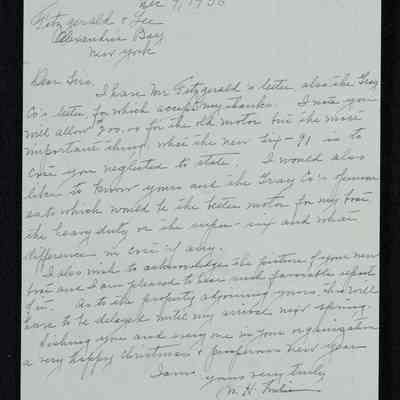 Dec 9, 1936
Fitzgerald & Lee
Alexandria Bay
New York
Dear Sirs,
I have Mr Fitzgerald's letter, also the Gray
Co's letter, for which accept my thanks. I note you
will allow 200.00 for the old motor but the more
important thing, what the new Six-91 is to
cost you neglected to state. I would also
like to know yours and the Gray Co's opinion
as to which would be the better motor for my boat
the heavy duty or the super-six and what
difference in cost if any.
I also wish to acknowledge the picture of your new
boat and I am pleased to hear such favorable report
of it. As to the property adjoining yours, this will
have to be delayed until my arrival next spring.
Wishing you and everyone in your organization
a very happy Christmas & prosperous new year
I am
yours very truly
W. H.